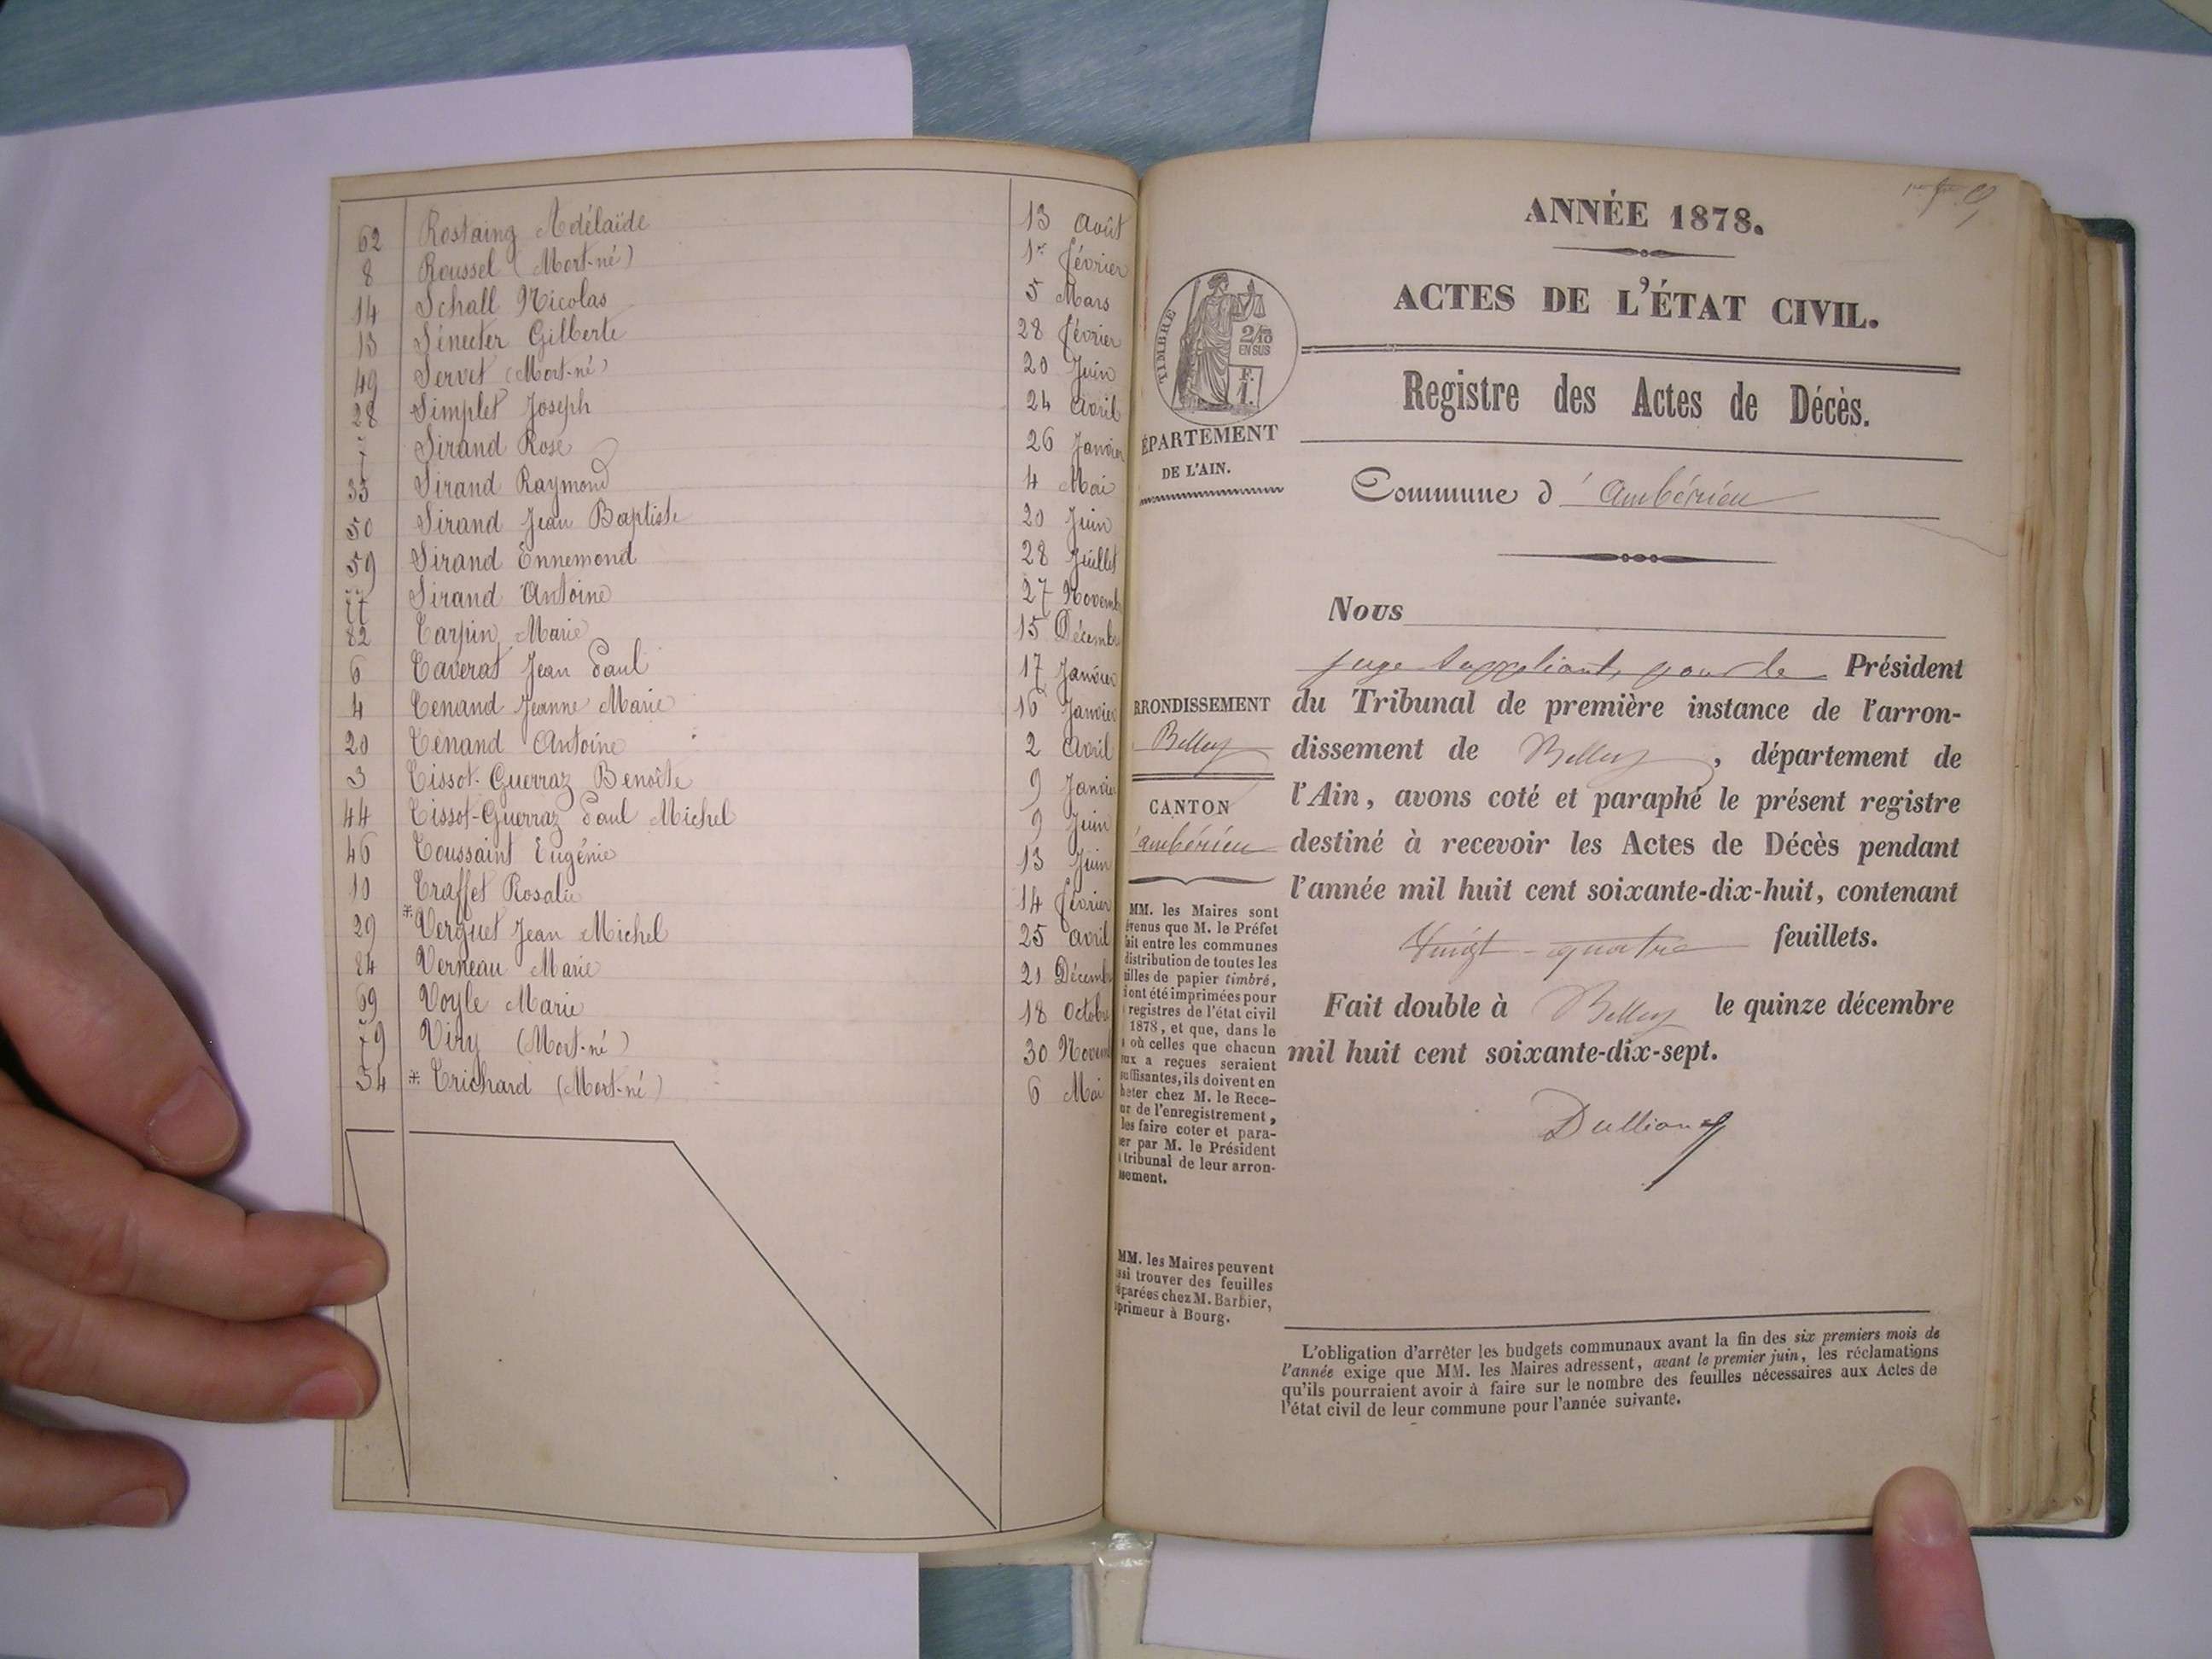 62 Rostaing Adélaïde 13 Août
8 Roussel (Mort-né) 1er Février
14 Schall Nicolas 5 Mars
13 Gilberte 28 Février
49 Servet (Mort-né) 20 Juin
28 Simplet Joseph 24 Avril
7 Sirand Rose 26 Janvier
35 Sirand Raymond 4 Mai
50 Sirand Jean Baptiste 20 Juin
59 Sirand Ennemond 28 Juillet
77 Sirand Antoine 27 Novemb
82 Tarpin Marie 15 Décembre
6 Taverat Jean Paul 17 Janvier
4 Tenand Jeanne Marie 16 Janvier
20 Tenand Antoine 2 Avril
3 Tissot-Guerraz Benoîte 9 Janvie
44 Tissot-Guerraz Paul Michel 9 Juin
46 Toussaint Eugénie 13 Juin
10 Traffet Rosalie 14 Février
29 * Verguet Jean Michel 25 Avril
84 Verneau Marie 21 Décemb
69 Voyle Marie 18 Octobre
79 Viry (Mort-né) 30 Novem
34 * Trichard (Mort-né) 6 Mai
ANNÉE 1878.
ACTES DE L'ÉTAT CIVIL.
TIMBRE
2/10
EN SUS
F.
1.
Registre des Actes de Décès.
ÉPARTEMENT
DE L'AIN.
Commune d'Ambérieu
Nous
juge suppléant, pour le Président
du Tribunal de première instance de l'arron-
dissement de Belley, département de
l'Ain, avons coté et paraphé le présent registre
destiné à recevoir les Actes de Décès pendant
l'année mil huit cent soixante-dix-huit, contenant
Vingt-quatre feuillets.
Fait double à Belley le quinze décembre
mil huit cent soixante-dix-sept.
RRONDISSEMENT
Belley
CANTON
d'ambérieu
MM. les Maires sont
évenus que M. le Préfet
ait entre les communes
distribution de toutes les
illes de papier timbré,
iont été imprimées pour
registres de l'état civil
1878, et que, dans le
où celles que chacun
ux a reçues seraient
suffisantes, ils doivent en
heter chez M. le Rece-
ur de l'enregistrement,
les faire coter et para-
er par M. le Président
tribunal de leur arron-
ssement.
MM. les Maires peuvent
ssi trouver des feuilles
éparées chez M. Barbier,
primeur à Bourg.
L'obligation d'arrêter les budgets communaux avant la fin des six premiers mois de
l'année exige que MM. les Maires adressent, avant le premier juin, les réclamations
qu'ils pourraient avoir à faire sur le nombre des feuilles nécessaires aux Actes de
l'état civil de leur commune pour l'année suivante.